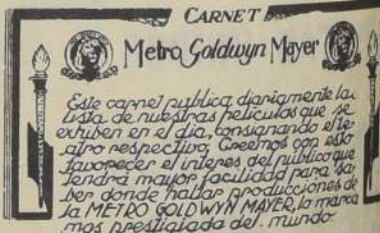 CARNET
Metro Goldwyn Mayer
Este carnet publica diariamente la
lista de nuestras peliculas que se
exhiben en el dia, consignando el te-
atro respectivo. Creemos con esto
favorecer el interes del público que
tendrá mayor facilidad para sa-
ber donde hallar producciones de
la METRO GOLDWYN MAYER, la marca
mas prestigiada del mundo.